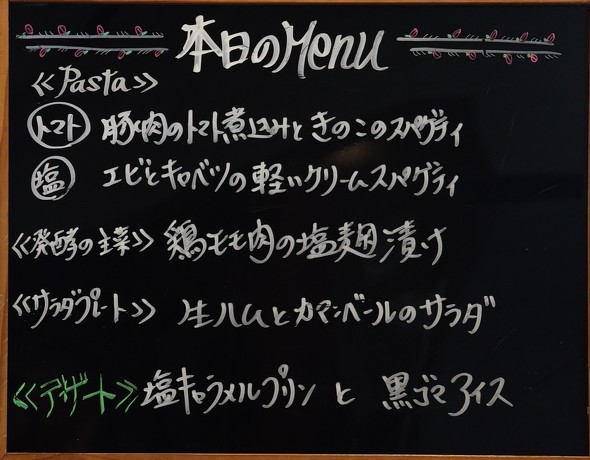 本日のMenu
≪Pasta≫
トマト 豚肉のトマト煮込みときのこのスパゲティ
塩 エビとキャベツの軽いクリームスパゲティ
≪発酵の主菜≫ 鶏モモ肉の塩麹漬け
≪サラダプレート≫ 生ハムとカマンベールのサラダ
≪デザート≫ 塩キャラメルプリン と 黒ゴマアイス